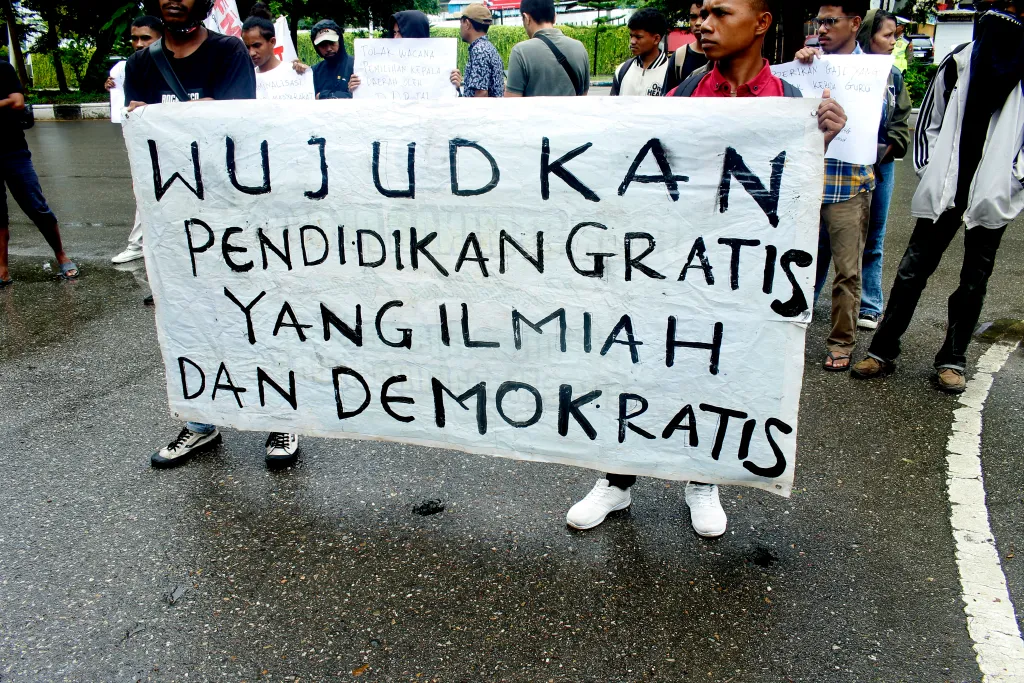 WUJUDKAN
PENDIDIKAN GRATIS
YANG ILMIAH
DAN DEMOKRATIS
TOLAK WACANA
PEMILIHAN KEPALA
DAERAH OLEH
GAJI
GURU